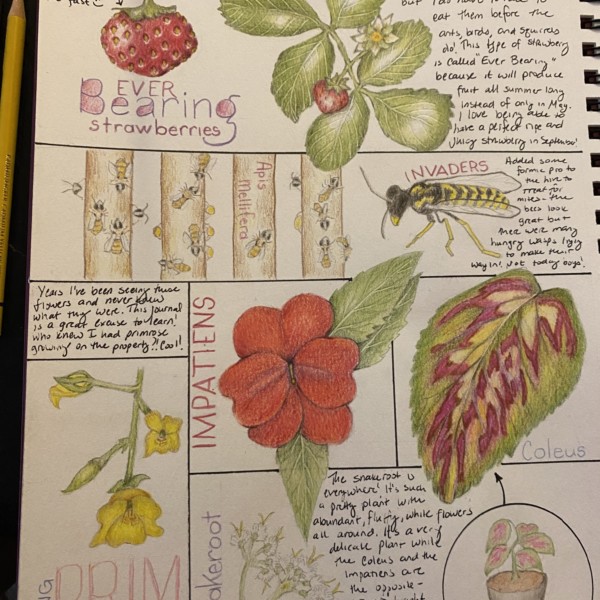 fast
EVER
Bearing
strawberries
eat them before the
ants, birds, and squirrels
do! This type of strawberry
is called "Ever Bearing"
because it will produce
fruit all summer long
instead of only in May.
I love being able to
have a perfect ripe and
juicy strawberry in September!
Apis
Mellifera
INVADERS
Added some
formic pro to
the hive to
treat for
mites - the
bees look
great but
there were many
hungry wasps trying
to make their
way in! Not today boys!
Years I've been seeing these
flowers and never knew
what they were. This journal
is a great excuse to learn!
who knew I had primrose
growing on the property?! Cool!
IMPATIENS
Coleus
The snakeroot is
everywhere! It's such
a pretty plant with
abundant, fluffy, white flowers
all around. It's a very
delicate plant while
the Coleus and the
Impatiens are
the opposite -
akeroot
NG
PRIM